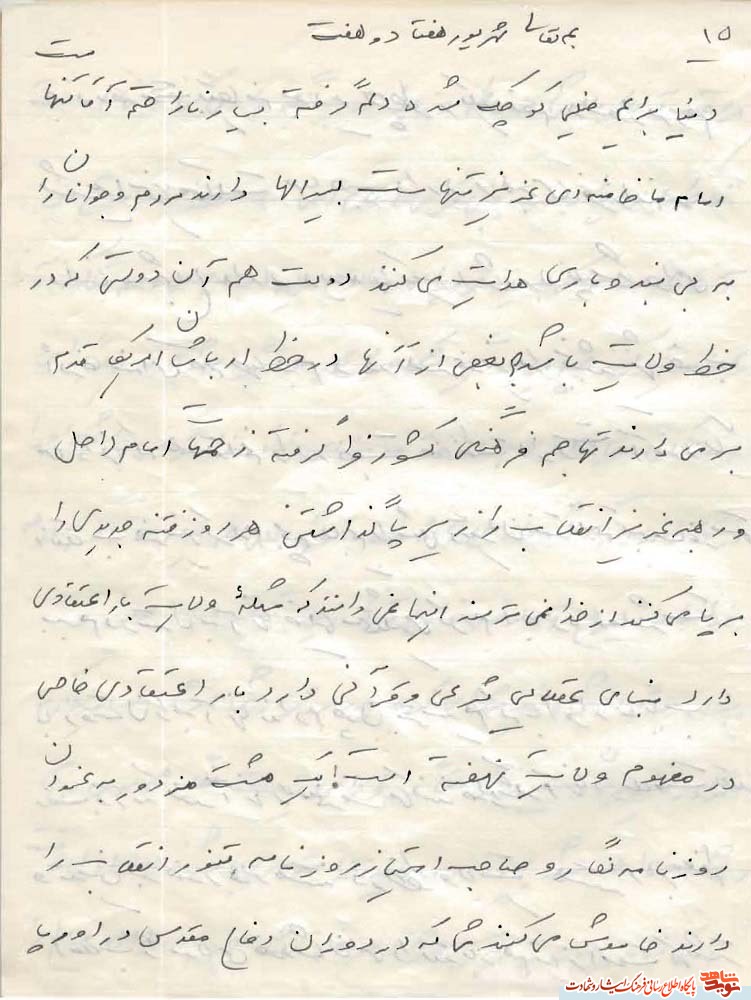 ۱۵ بسم تعالی شهریور هفتاد و هفت
دنیا برایم خیلی کوچک شده دلم گرفته بسیار ناراحتم آقا تنها ست
امام ما خامنه ای عزیز تنهاست لیبرالها دارند مردم و جوانان را
به بی بند و باری هدایت می کنند دولت هم آن دولتی که در
خط ولایت باشد بعضی از آنها در خط اربابان امریکا قدم
بر می دارند تهاجم فرهنگی کشور را فرا گرفته زحمتهای امام راحل
و رهبر عزیز انقلاب را زیر پا گذاشتن هر روز فتنه جدیدی را
بر پا می کنند از خدا نمی ترسند اینها نمی دانند که مسئلهٔ ولایت بار اعتقادی
دارد مبنای عقلایی شرعی و قرآنی دارد بار اعتقادی خاصی
در مفهوم ولایت نهفته است یک مشت مزدور به عنوان
روزنامه نگار و صاحب امتیاز روزنامه تنور انقلاب را
دارند خاموش می کنند شما که در دوران دفاع مقدس در اروپا
نوید شاهد
پایگاه اطلاع رسانی فرهنگ ایثار و شهادت